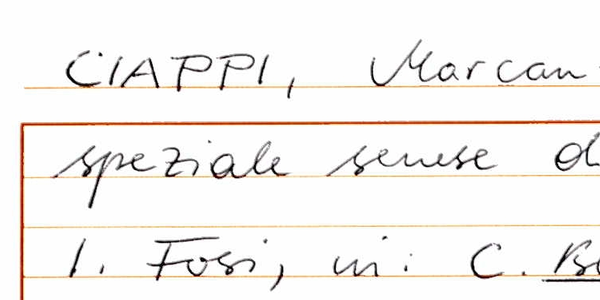 CIAPPI, Marcan
speziale senese d
I. Fosi, in: C. B